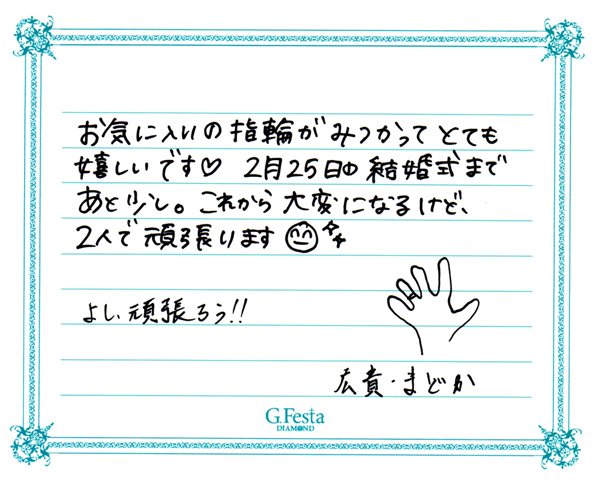 お気に入いの指輪がみつかってとても
嬉しいです♡ 2月25日の結婚式まで
あと少し。これから大変になるけど、
2人で頑張ります
よし、頑張ろう!!
広貴・まどか
G.Festa
DIAMOND